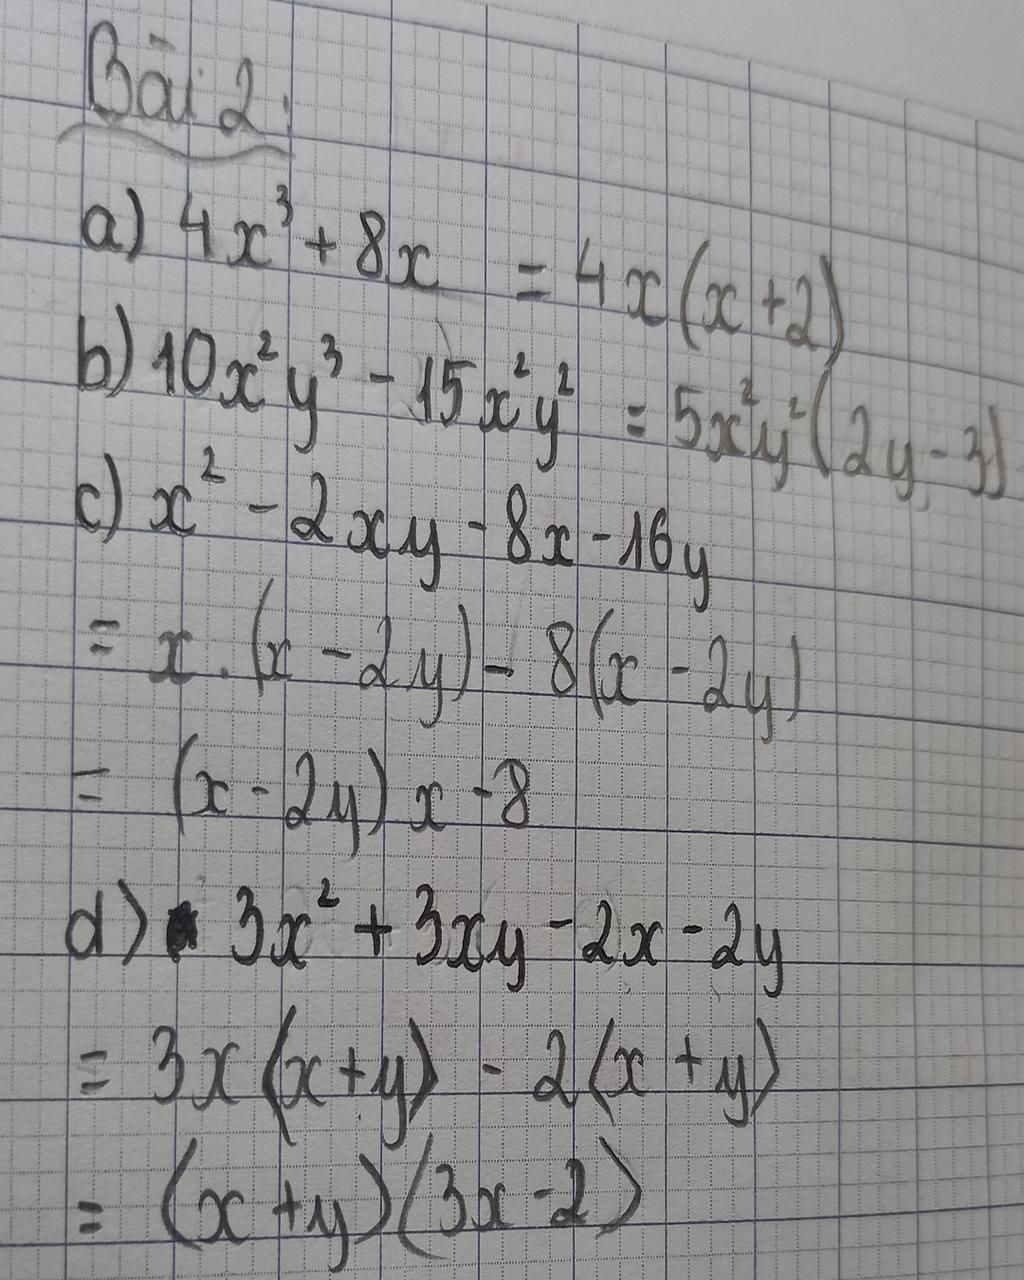 Bài 2:
a) 4x³ + 8x = 4x(x+2)
b) 10x²y³ - 15x²y² = 5x²y²(2y-3)
c) x² - 2xy - 8x - 16y
= x . (x - 2y) - 8(x - 2y)
= (x - 2y) x - 8
d) 3x² + 3xy - 2x - 2y
= 3x(x+y) - 2(x + y)
= (x + y)(3x - 2)